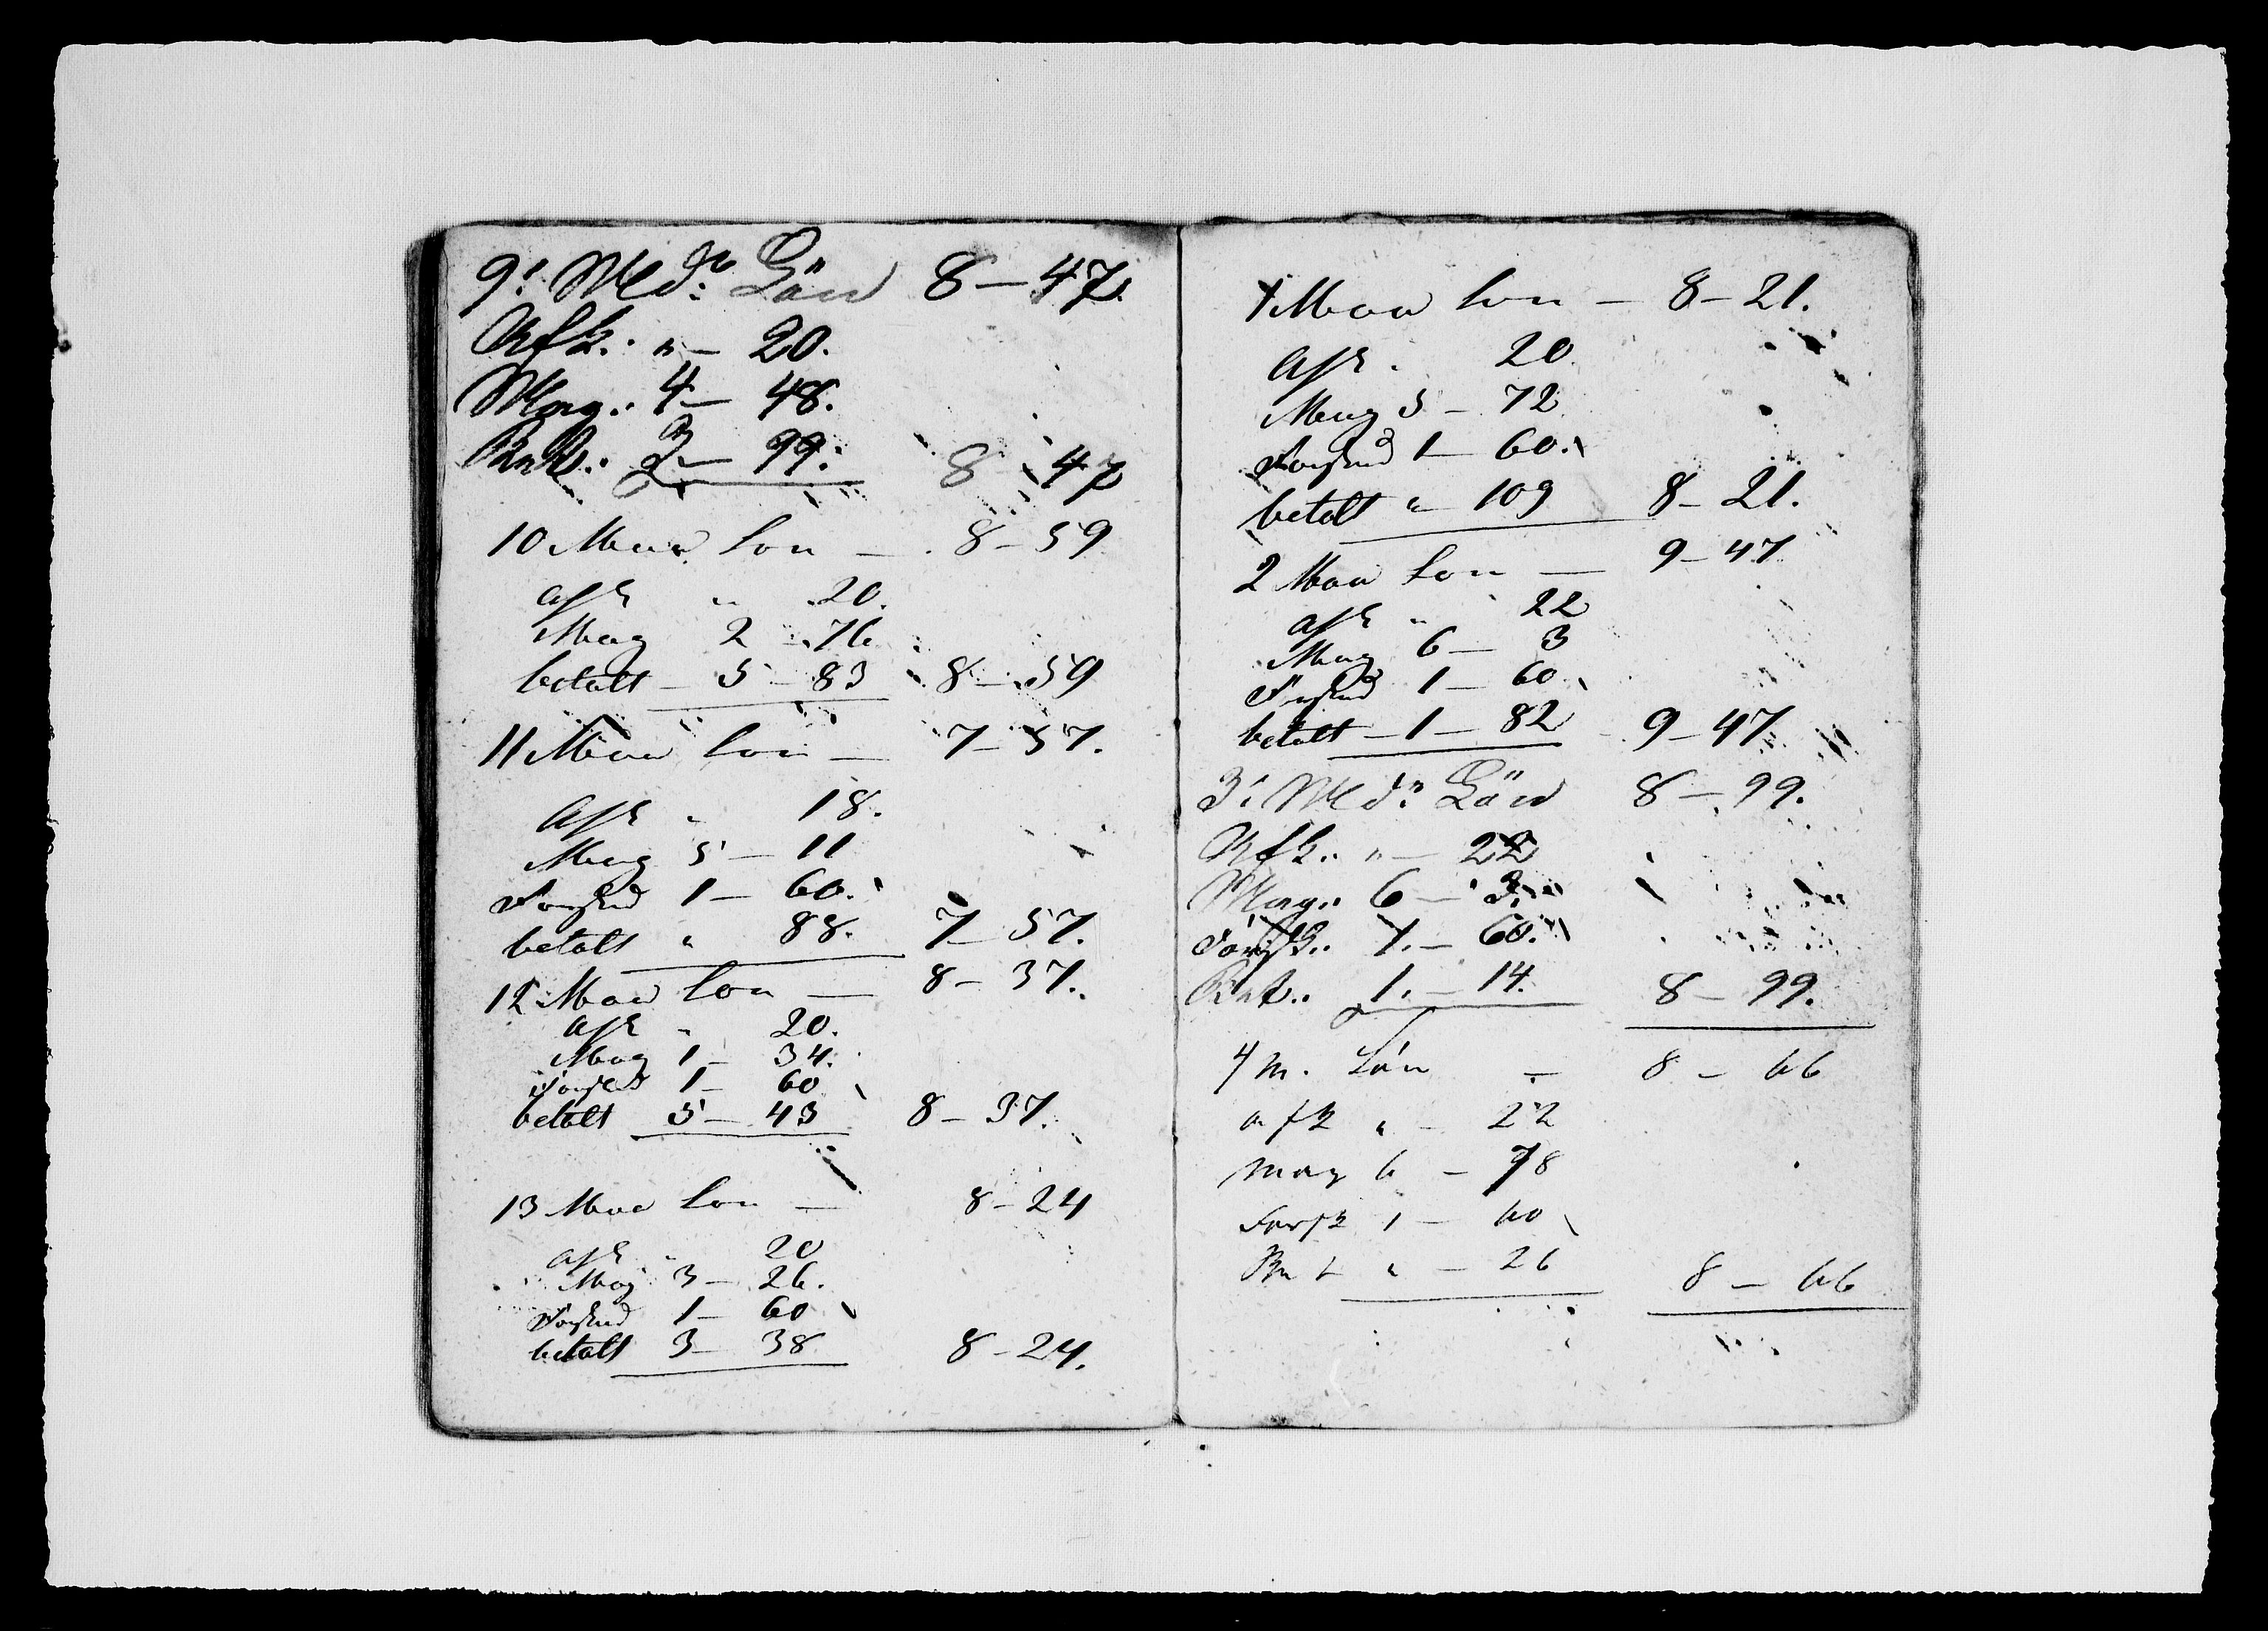 9: Md: Lön 8 – 47.
Afk: " – 20.
Mag: 4 – 48.
Bet: 3 – 99: 8 – 47
10 Maa Lon – 8 – 59
Afk " 20.
Mag 2 – 76
betalt – 5 – 83 8 – 59
11 Maa Lon – 7 – 57.
Afk " 18.
Mag 5 – 11
Forskud 1 – 60.
betalt " 88. 7 – 57.
12 Maa Lon – 8 – 37.
Afk " 20.
Mag 1 – 34.
Forskud 1 – 60
betalt 5 – 43 8 – 37.
13 Maa Lon – 8 – 24
Afk " 20
Mag 3 – 26.
Forskud 1 – 60
betalt 3 – 38 8 – 24.
1 Maa Lon – 8 – 21.
Afk. 20.
Mag 5 – 72
Forskud 1 – 60.
betalt " 109 8 – 21.
2 Maa Lon – 9 – 47
Afk " 22
Mag 6 – 3
Forskud 1 – 60
betalt – 1 – 82 9 – 47
3: Md: Lön 8 – 99.
Afk: " – 22
Mag: 6 – 3.
Forsk: 1. – 60.
Bet: 1. – 14. 8 – 99.
4 M. Lön – 8 – 66
afk " – 22
mag 6 – 78
Forsk 1 – 60
Bet " – 26 8 – 66